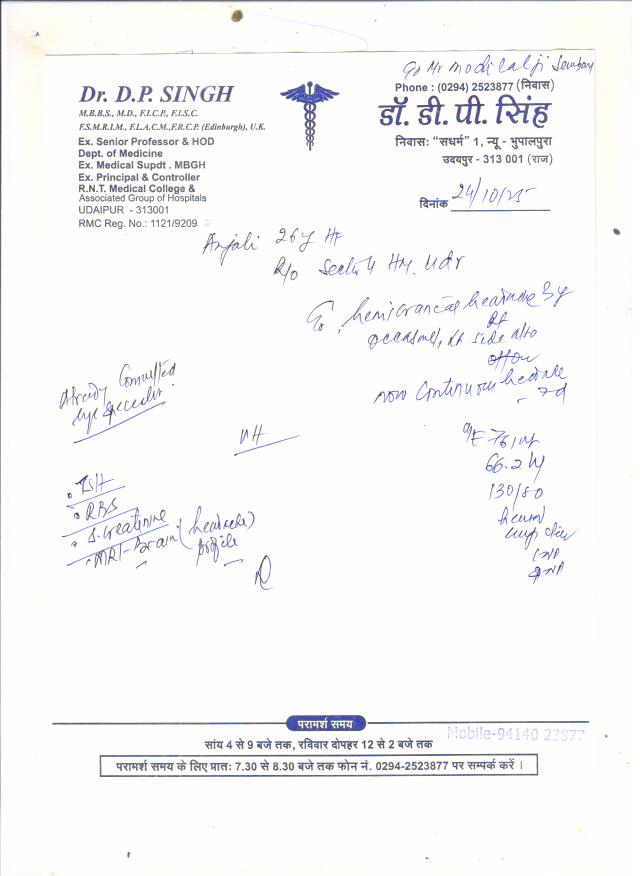 Phone : (0294) 2523877 (निवास)
Dr. D.P. SINGH
M.B.B.S., M.D., F.I.C.P., F.I.S.C.
F.S.M.R.I.M., F.L.A.C.M.,F.R.C.P. (Edinburgh), U.K.
Ex. Senior Professor & HOD
Dept. of Medicine
Ex. Medical Supdt . MBGH
Ex. Principal & Controller
R.N.T. Medical College &
Associated Group of Hospitals
UDAIPUR - 313001
RMC Reg. No.: 1121/9209
डॉ. डी. पी. सिंह
निवासः "सधर्म" 1, न्यू - भुपालपुरा
उदयपुर - 313 001 (राज)
दिनांक 24/10/25
Anjali 26y
R/o
hemicranial headache 3y
occasional, side also
often
now continuous headache
- 7d
Already
eye specialist
O/E 76/m
66.2
130/80
TSH
RBS
S. Creatinine
MRI - Brain (headache)
profile
परामर्श समय
सांय 4 से 9 बजे तक, रविवार दोपहर 12 से 2 बजे तक
Mobile-94140 23877
परामर्श समय के लिए प्रातः 7.30 से 8.30 बजे तक फोन नं. 0294-2523877 पर सम्पर्क करें ।